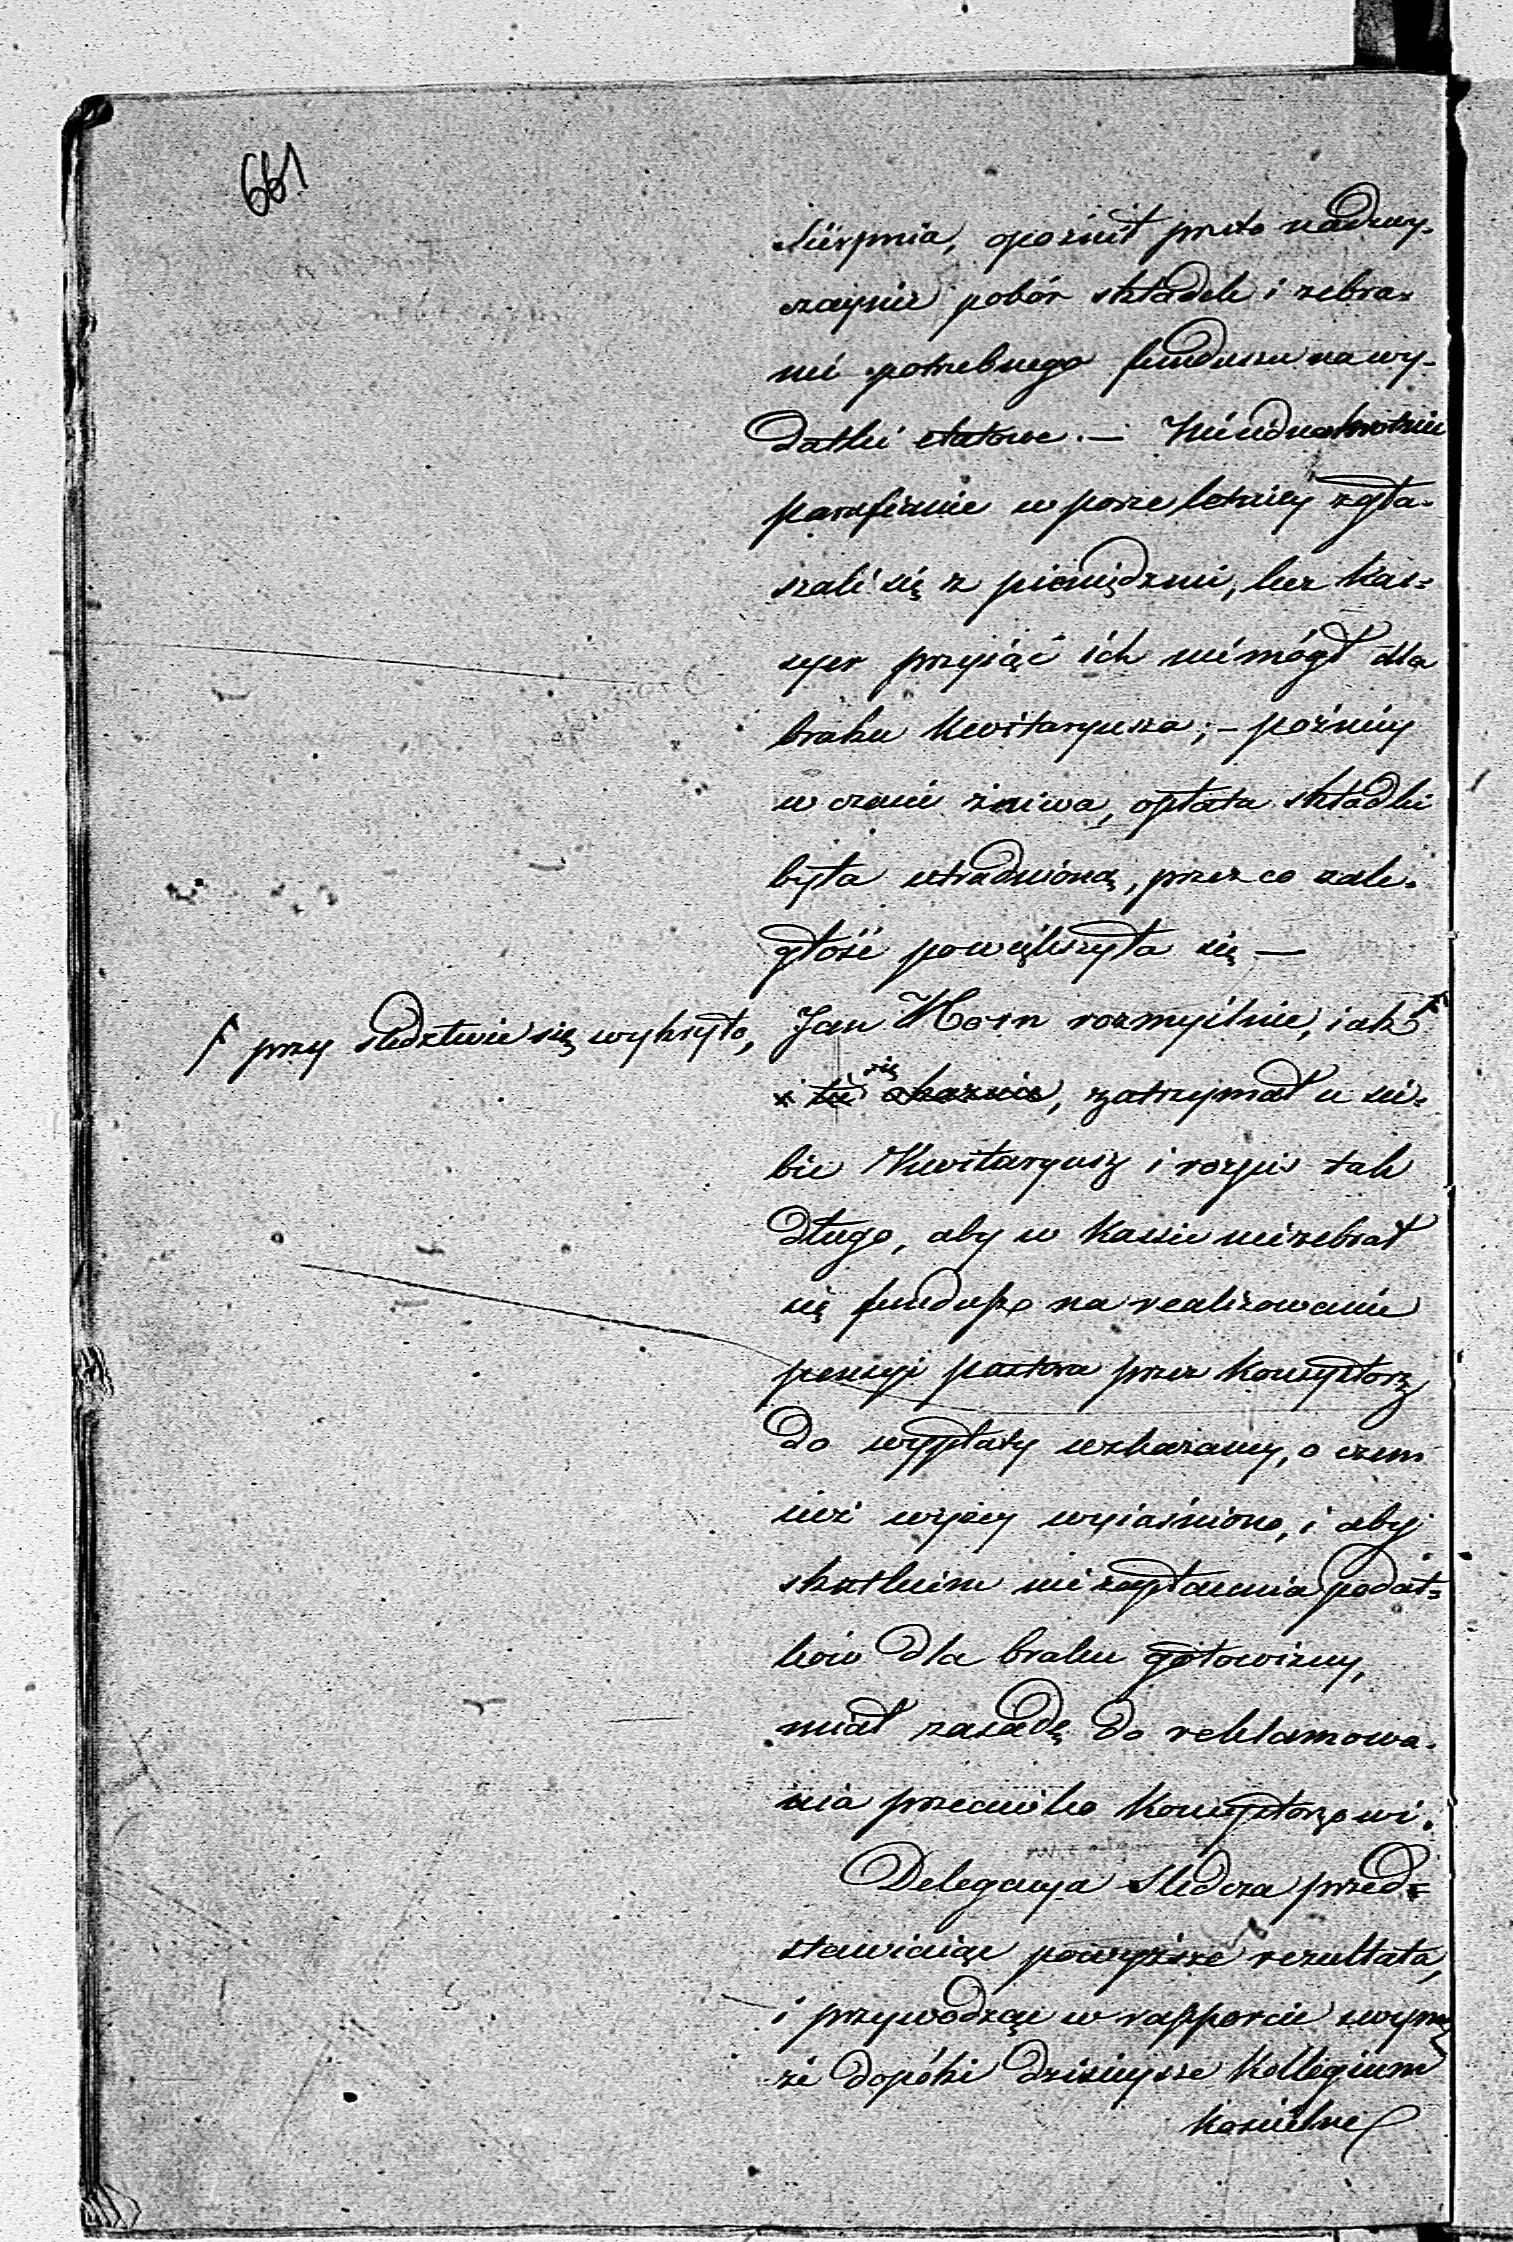 661
Sierpnia, opóźnił przeto nadzwy-
czaynie pobór składek i zebra-
nie potrzebnego funduszu na wy-
datki etatowe. — Nieiednokrotnie
parafianie w porze letniey zgła-
szali się z pieniędzmi, lecz Kas-
syer przyiąć ich nie mógł dla
braku Kwitaryusza; – poźniey
w czasie żniwa, opłata składki
była utrudnioną, przez co zale-
głość powiększyła się —
Jan Horn rozmyślnie, iak
przy śledztwie się wykryło,
się
zatrzymał u sie-
bie Kwitaryusz i rozpis tak
długo, aby w Kassie nie zebrał
się fundusz na realizowanie
pensyi pastora przez Konsystorz
do wypłaty wskazaney, o czem
iuż wyżey wyiaśniono, i aby
skutkiem nie zapłacenia podat-
ków dla braku gotowizny,
miał zasadę do reklamowa-
nia przeciwko Konsystorzowi.
Delegacya Śledcza przed-
stawiaiąc powyższe rezultata,
i przywodząc w rapporcie swym
że dopóki dzisieysze Kollegium
Kościelne